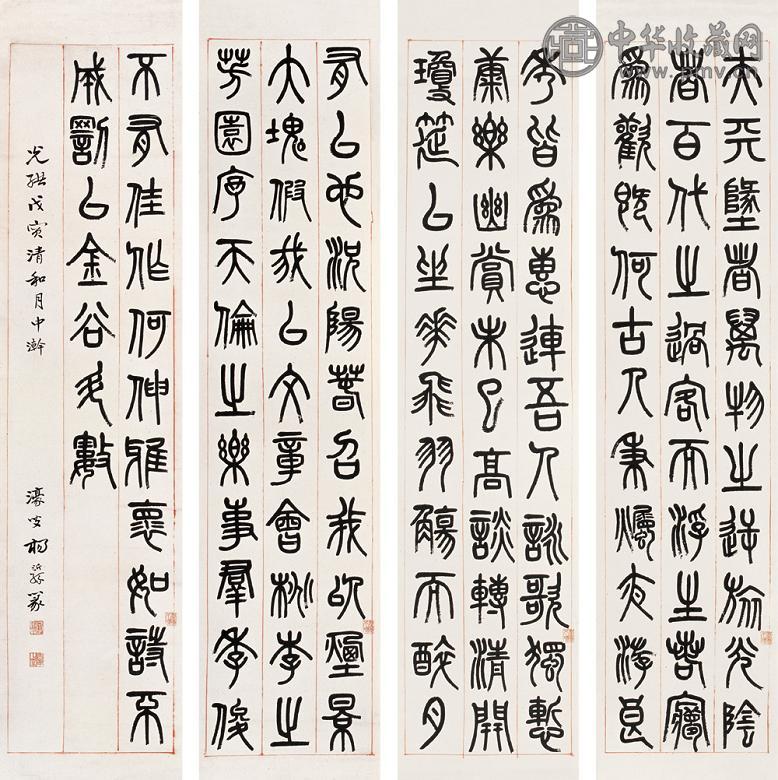 夫天墬者萬物之逆旅光陰
者百代之過客而浮生若㝱
爲歡幾何古人秉燭夜游良
有以也況陽春召我以煙景
大塊假我以文章會桃李之
芳園序天倫之樂事羣季俊
秀皆爲惠連吾人詠歌獨慙
康樂幽賞未已高談轉清開
瓊筵以坐華飛羽觴而醉月
不有佳作何伸雅懷如詩不
成罰以金谷數
光緒戊寅清和月中澣
濠叟楊沂孫篆
中华收藏网